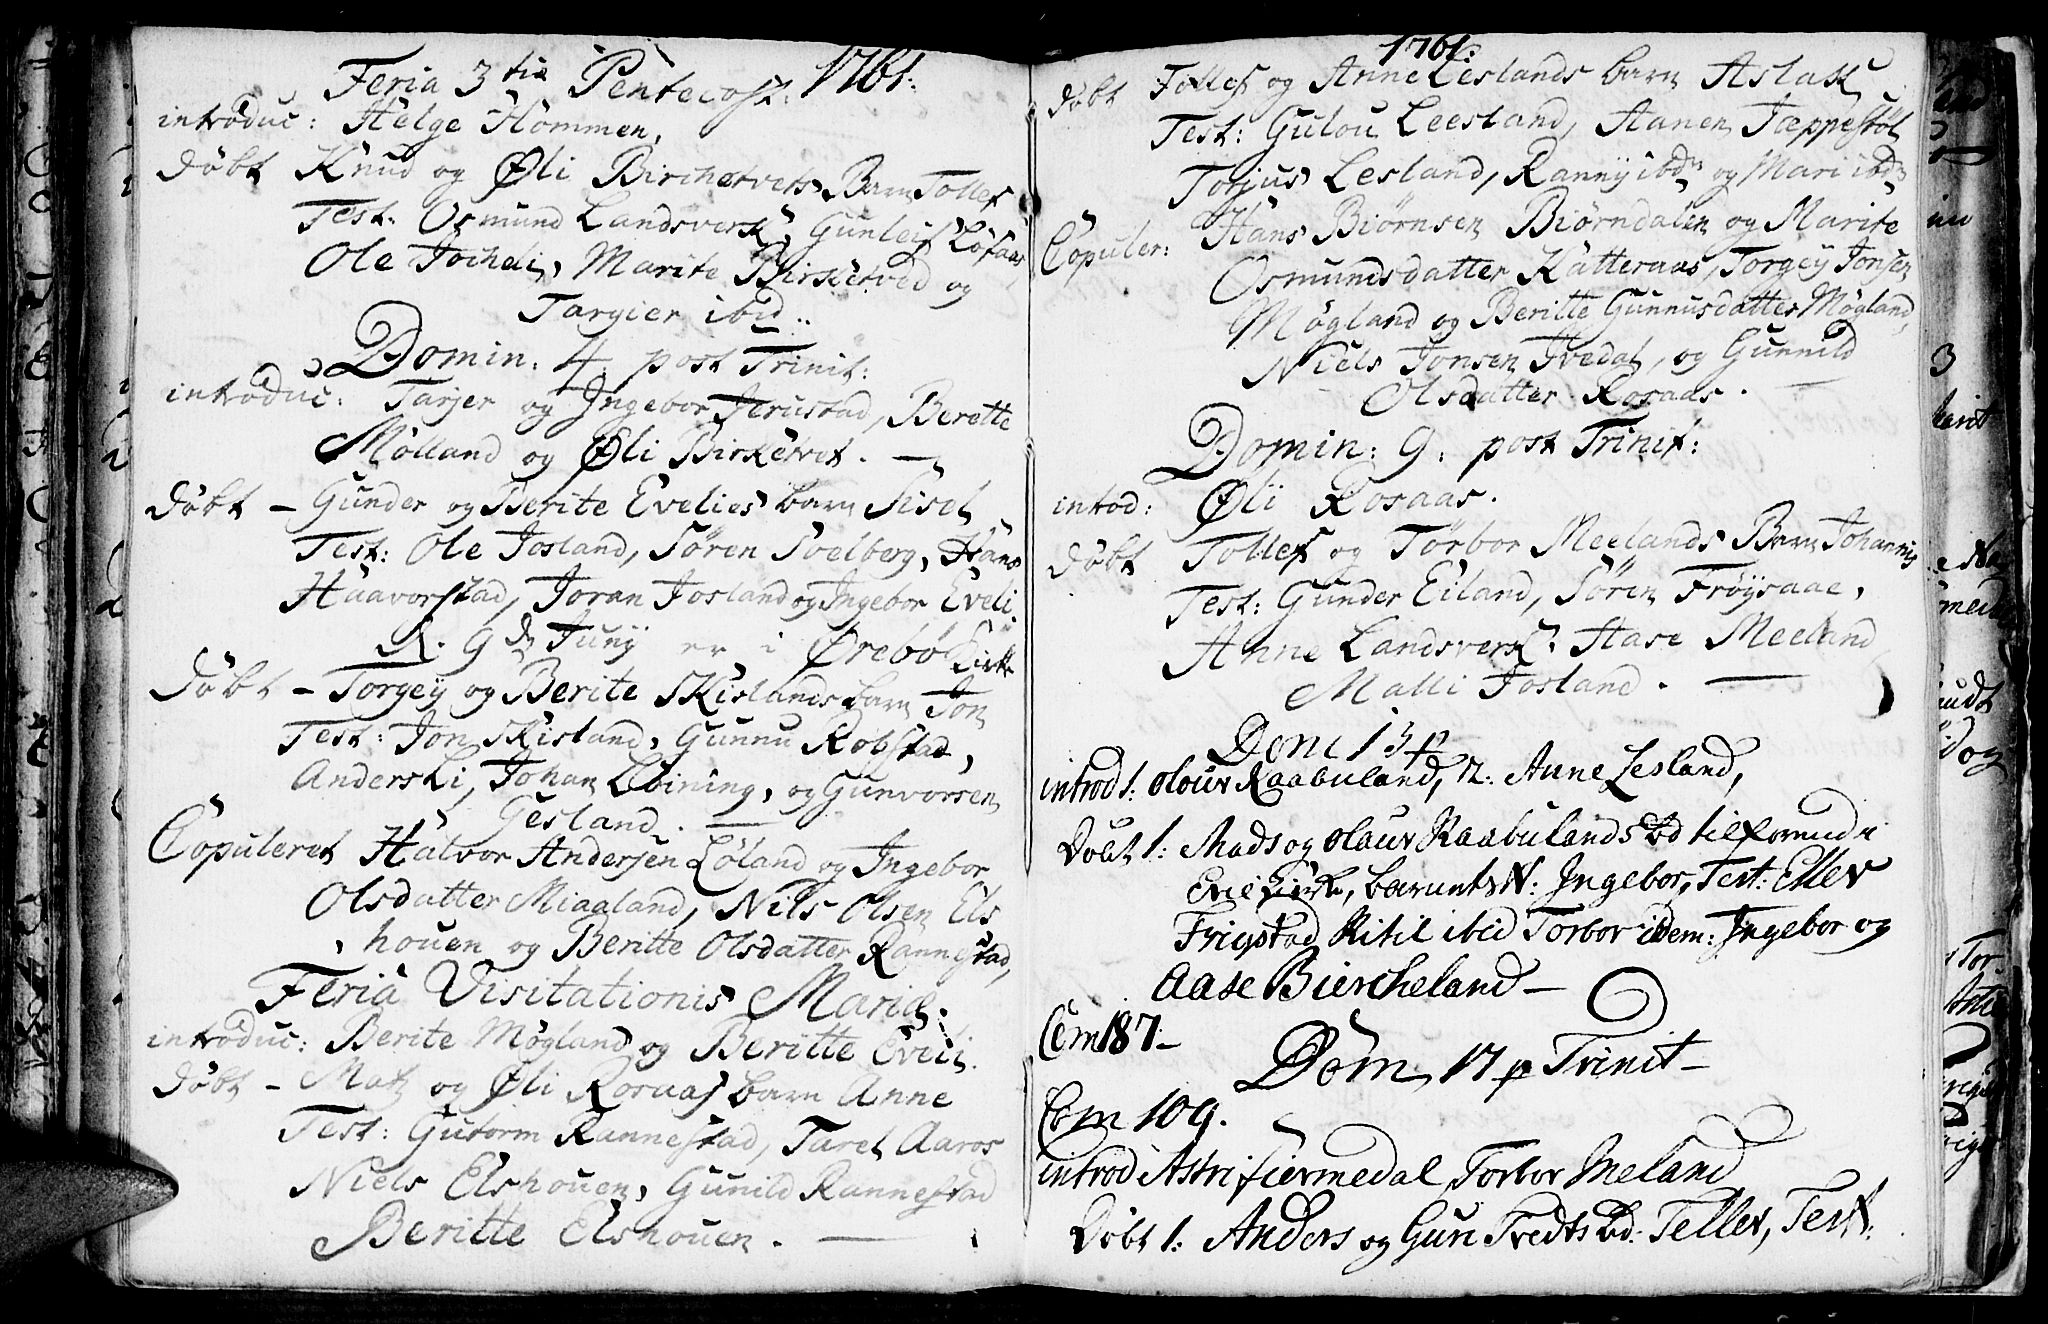 Feria 3tia Pentecost: 1761.
introduc: Helge Hommen,
Døbt Knud og Øli Birchetvets Barn Tollef
Test: Osmund Landsverk, Gunleif Løfaas,
Ole Jocheli, Marite Birketved og
Targier ibid..
Domin. 4. post Trinit:
introduc: Tarjer og Ingebor Jerustad, Berette
Mølland og Øli Birketvet. —
Døbt — Gunder og Berite Evelies barn Sisel
Test: Ole Josland, Sören Svelberg, Hans
Haavorstad, Joran Josland og Ingebor Eveli
d. 9de Junij er i Örebö Kirke
Döbt — Torgey og Berite Skislands barn Jon
Test: Jon Skisland, Gunnu Robstad,
Anders Li, Johan Löining, og Gunvor
Gesland. —
Copuleret Halvor Andersen Löland og Ingebor
Olsdatter Miaaland, Nils Olsen Els
houen og Beritte Olsdatter Rannestad,
Feria Visitationis Mariæ.
introduc: Berite Mögland og Beritte Eveli.
Döbt — Matz og Øli Rosaas barn Anne
Test: Gutorm Rannestad, Tarel Aaros
Niels Elshouen, Gunild Rannestad
Beritte Elshouen. —
1761.
Döbt Tollef og Anne Leslands barn Aslak
Test: Gulou Leesland, Aanen Tæppestöl
Torjus Lesland, Ranny ibdm og Mari ibdm
Copuler: Hans Biørnsen Biørndalen og Marite
Osmundsdatter Katteraas, Torgey Jonsen
Mögland og Beritte Gunnusdatter Mögland,
Niels Jonsen Ivedal, og Gunnild
Olsdatter Rosaas. —
Domin: 9. post Trinit:
introd: Øli Rosaas.
Döbt Tollef og Törbor Meelands Barn Johannis
Test: Gunder Eiland, Sören Fröysaae,
Anne Landsverk. Aase Meeland,
Malli Josland. —
Dom 13 p
introd 1: Olouv Raabuland, 2: Anne Lesland,
Döbt 1: Mads og Olauv Raabulands bd til forn i
Evie Kirke, barnets N: Ingebor, Test: Ellev
Frigstad Kitil ibid Torbor idem: Ingebor og
Aase Biercheland —
Cem 187 —
Dom 17 p Trinit —
Cem 109.
introd Astri fiermedal Torbor Meland
Döbt 1: Anders og Guri Tvedts bd: Tellev, Test: